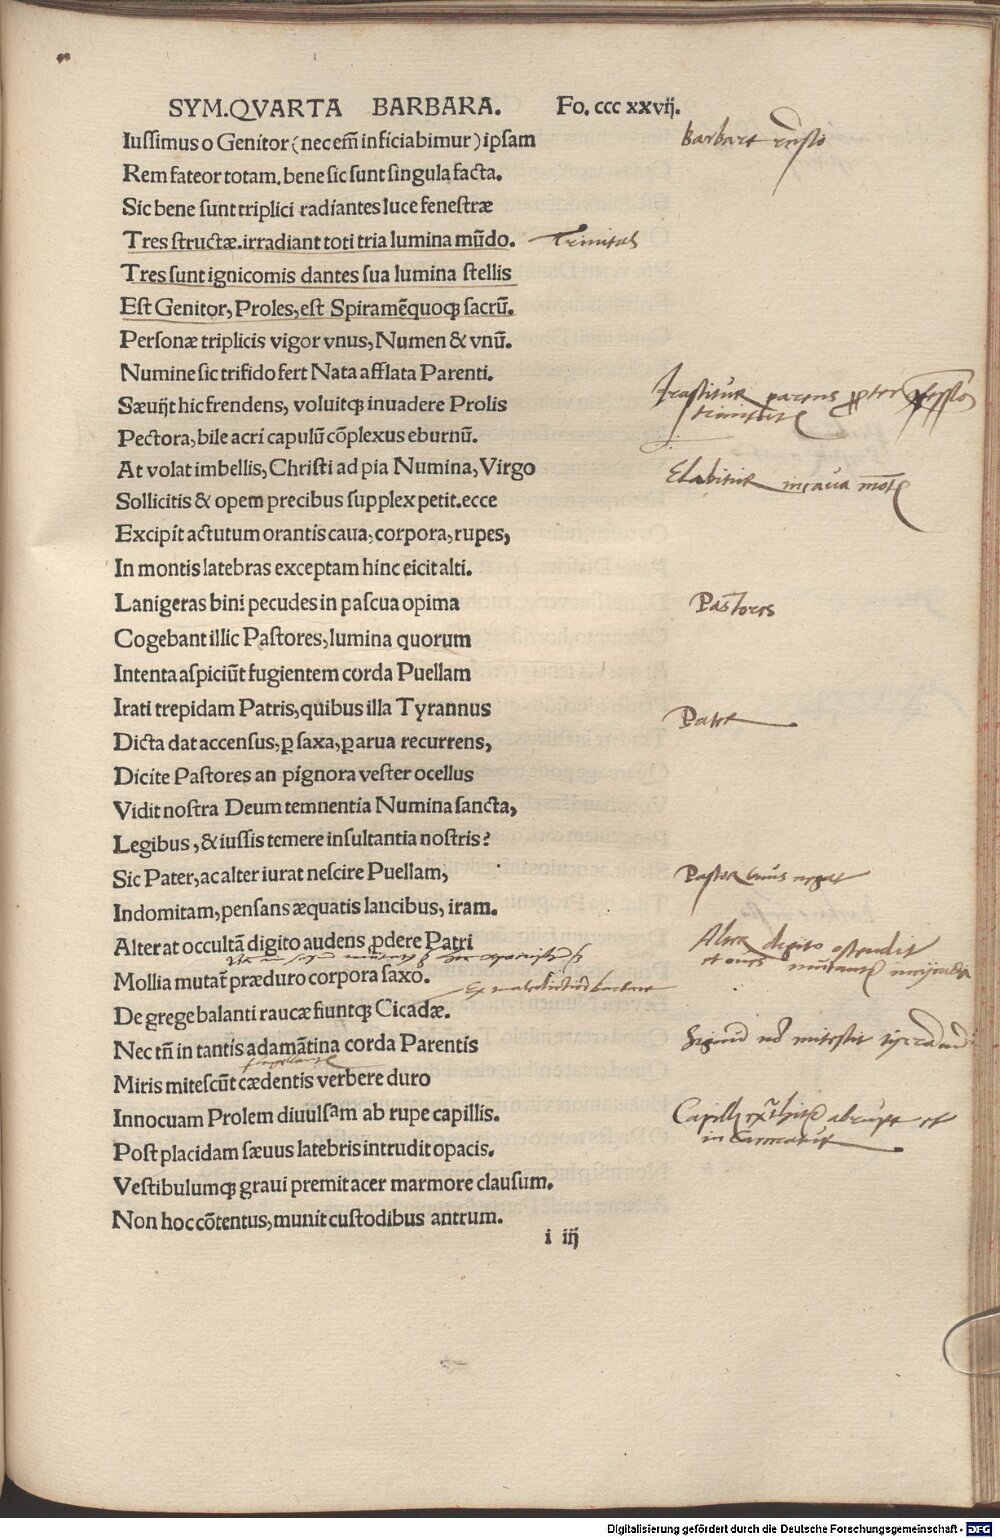 SYM.QVARTA BARBARA. Fo. ccc xxvij.
Iussimus o Genitor (nec em̄ inficiabimur) ipsam
Barbare
Rem fateor totam. bene sic sunt singula facta.
Sic bene sunt triplici radiantes luce fenestræ
Tres structæ. irradiant toti tria lumina mūdo.
Trinitas
Tres sunt ignicomis dantes sua lumina stellis
Est Genitor, Proles, est Spiramēquoqꝫ sacrū.
Personæ triplicis vigor vnus, Numen & vnū.
Numine sic trifido fert Nata afflata Parenti.
Sæuijt hic frendens, voluitqꝫ inuadere Prolis
parens
Pectora, bile acri capulū cōplexus eburnū.
At volat imbellis, Christi ad pia Numina, Virgo
Elabitur
Sollicitis & opem precibus supplex petit. ecce
Excipit actutum orantis caua, corpora, rupes,
In montis latebras exceptam hinc eicit alti.
Lanigeras bini pecudes in pascua opima
Pastores
Cogebant illic Pastores, lumina quorum
Intenta aspiciūt fugientem corda Puellam
Irati trepidam Patris, quibus illa Tyrannus
Patre
Dicta dat accensus, ꝑ saxa, ꝑ arua recurrens,
Dicite Pastores an pignora vester ocellus
Vidit nostra Deum temnentia Numina sancta,
Legibus, & iussis temere insultantia nostris?
Sic Pater, ac alter iurat nescire Puellam,
Pastor unus negat
Indomitam, pensans æquatis lancibus, iram.
Alter at occultā digito audens ꝓdere Patri
Alter digito ostendit
et oues
Mollia mutat̄ præduro corpora saxo.
De grege balanti raucæ fiuntqꝫ Cicadæ.
Nec tn̄ in tantis adamātina corda Parentis
Miris mitescūt cædentis verbere duro
Innocuam Prolem diuulsam ab rupe capillis.
Post placidam sæuus latebris intrudit opacis.
Vestibulumqꝫ graui premit acer marmore clausum.
Non hoc cōtentus, munit custodibus antrum.
i iij
Digitalisierung gefördert durch die Deutsche Forschungsgemeinschaft - DFG